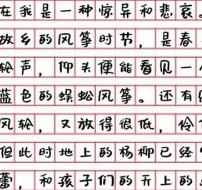 在我是一种惊异和悲哀。
故乡的风筝时节，是春
轮声，仰头便能看见一
蓝色的蜈蚣风筝。还有
风轮，又放得很低，伶
但此时地上的杨柳已经
蕾，和孩子们的天上的